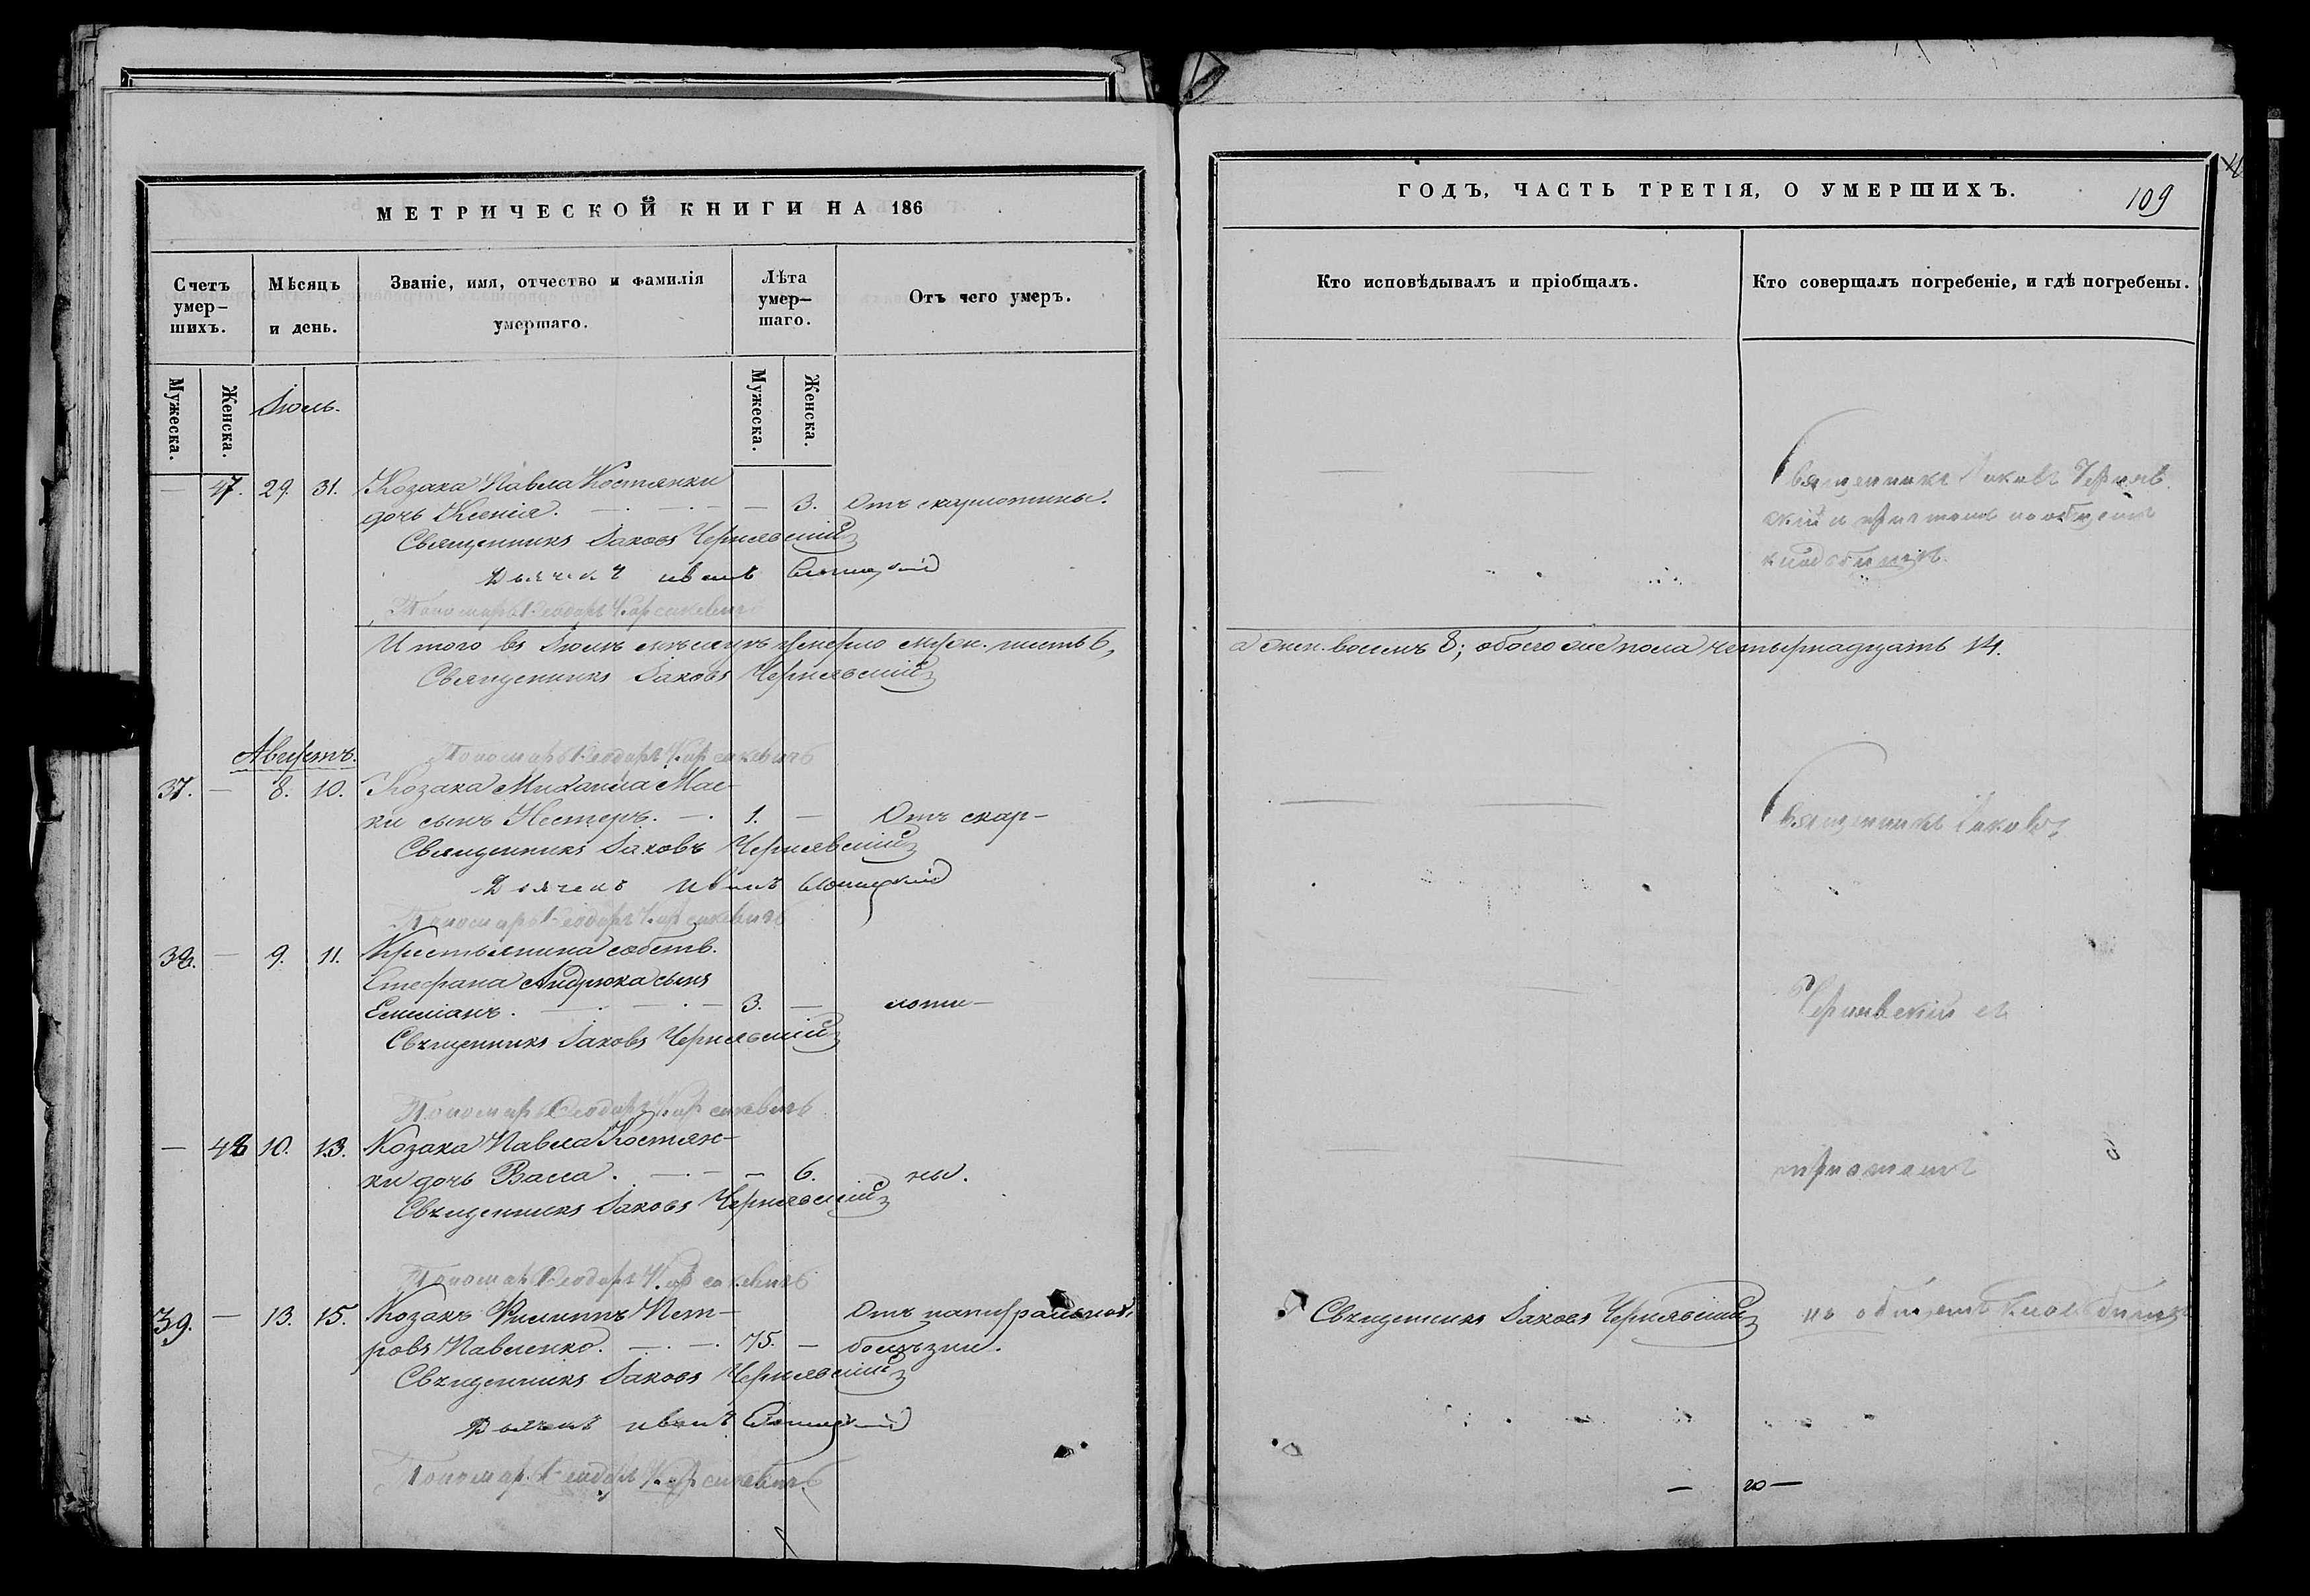 МЕТРИЧЕСКОЙ КНИГИ НА 186
Счетъ умер-шихъ.
Мѣсяцъ и день.
Званіе, имя, отчество и фамилія умершаго.
Лѣта умер-шаго.
Отъ чего умеръ.
Мужеска.
Женска.
Мужеска.
Женска.
Іюль.
— 47. 29. 31. Козака Павла Костянки
дочь Ксенія. — 3. Отъ скарлотины.
Священникъ Іаковъ Чернявскій
Дьячекъ Иванъ
Пономарь Феодоръ
Итого въ Іюлѣ мѣсяцѣ умерло муж. шесть 6,
Священникъ Іаковъ Чернявскій
Августъ.
Пономарь Феодоръ
37. — 8. 10. Козака Михаила Мас-
ки сынъ Нестеръ. — 1. — Отъ скар-
Священникъ Іаковъ Чернявскій
Дьячекъ Иванъ
Пономарь Феодоръ
38. — 9. 11. Крестьянина собств.
Стефана Андрюка сынъ
Емиліанъ. — 3. — лоти-
Священникъ Іаковъ Чернявскій
Пономарь Феодоръ
— 48 10. 13. Козака Павла Костян-
ки дочь Васса. — 6. ны.
Священникъ Іаковъ Чернявскій
Пономарь Феодоръ
39. — 13. 15. Козакъ Филиппъ Пет-
ровъ Павленко. — 75. — Отъ натуральной
болѣзни.
Священникъ Іаковъ Чернявскій
Дьячекъ Иванъ
Пономарь Феодоръ
ГОДЪ, ЧАСТЬ ТРЕТІЯ, О УМЕРШИХЪ.
109
Кто исповѣдывалъ и пріобщалъ.
Кто совершалъ погребеніе, и гдѣ погребены.
Священникъ Іаковъ Черняв-
скій и причтомъ на общемъ
кладбищѣ.
а жен. восемъ 8; обоего же пола четырнадцать 14.
Священникъ Іаковъ
Чернявскій съ
причтомъ
Священникъ Іаковъ Чернявскій
на общемъ кладбищѣ